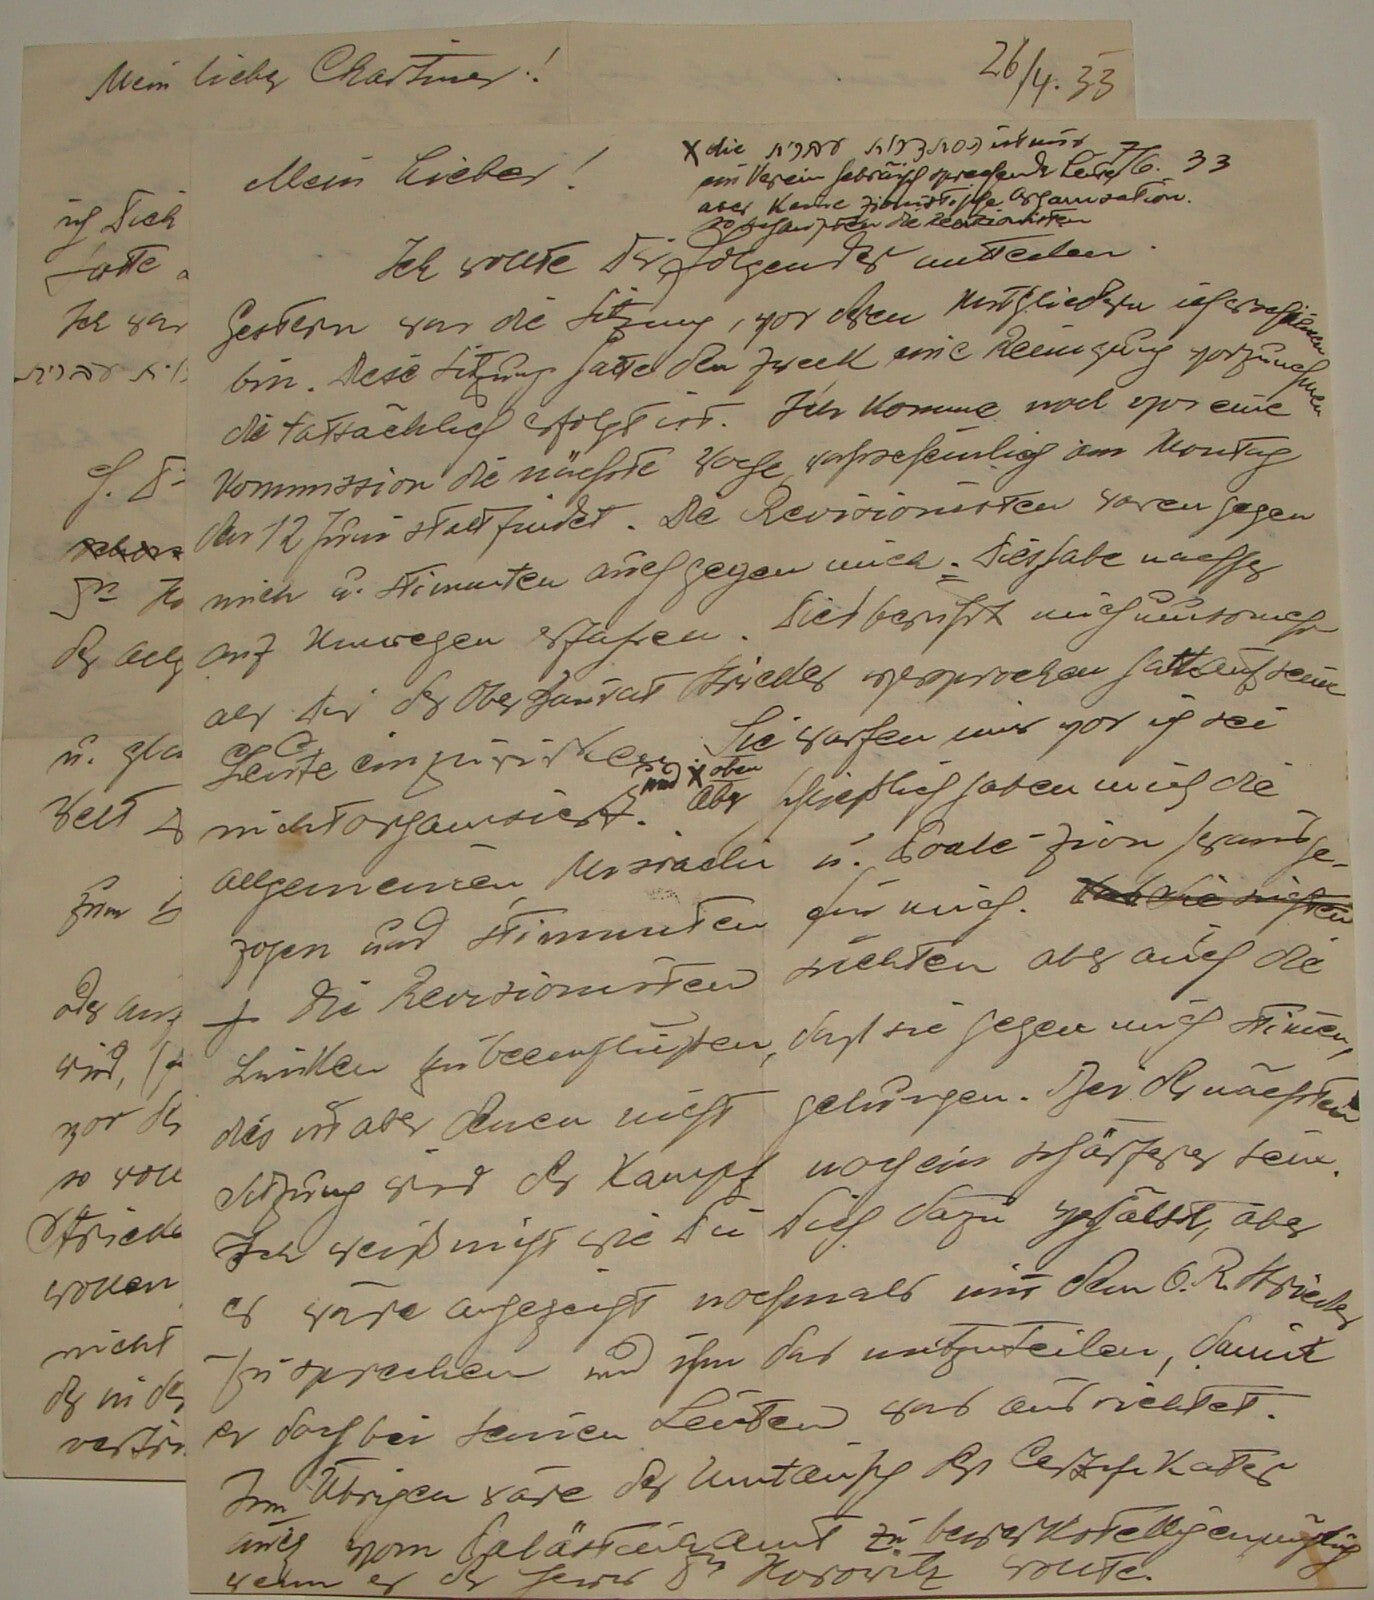 Mein lieber Chartiner!
26/4. 33
ich Dich
hatte
Ich war
ית עברית
H. D
Dr Ho
der allg
u. gla
Welt
zum
oder aus
wird,
vor der
so woll
Stricke
wollen
nicht
der in der
vertr
Mein Lieber!
7/6. 33
X die הסתדרות עברית ist nur
ein Verein hebräisch sprechender Leute
aber keine zionistische Organisation.
so behaupten die Revisionisten
Ich wollte Dir folgendes mitteilen.
Gestern war die Sitzung, vor deren Mitgliedern ich erschienen
bin. Diese Sitzung hatte den Zweck eine Reinigung vorzunehmen
die tatsächlich erfolgt ist. Ich komme noch vor eine
Kommission die nächste Woche wahrscheinlich am Montag
den 12 Juni stattfindet. Die Revisionisten waren gegen
mich u. stimmten auch gegen mich. Dies habe nachher
auf Umwegen erfahren. Dies berührt mich umsomehr
als Dir der Oberbaurat Stricker versprochen hatte auf seine
Leute einzuwirken. Sie warfen mir vor ich sei
nicht organisiert. und X oben Aber schließlich haben mich die
allgemeinen, Misrachi u. Poale-Zion herausge-
zogen und stimmten für mich.
+ Die Revisionisten suchten aber auch die
Linken zu beeinflußen, daß sie gegen mich stimen,
dies ist aber denen nicht gelungen. Bei der nächsten
Sitzung wird der Kampf noch ein schärferer sein.
Ich weiß nicht wie Du Dich dazu verhälst, aber
es wäre angezeigt nochmals mit dem O.R. Stricker
zu sprechen und ihm das mitzuteilen, damit
er doch bei seinen Leuten was ausrichtet.
Im Übrigen wäre der Umtausch des Certifikates
auch vom Palästinaamt zu bewerkstelligen möglich
wenn er der Herr Dr Horowitz wollte.